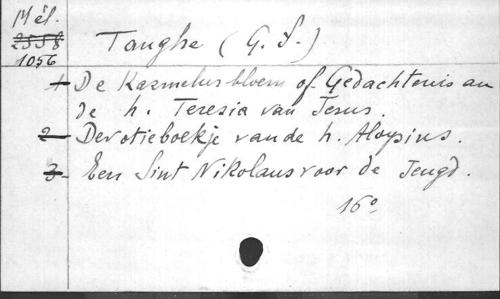 Mél.
2558
1056
Tanghe (G. F.)
1- De Karmelus bloem of Gedachtenis aan
de h. Teresia van Jesus.
2- Devotieboekje van de h. Aloysius.
3- Een Sint Nikolaus voor de Jeugd.
16°